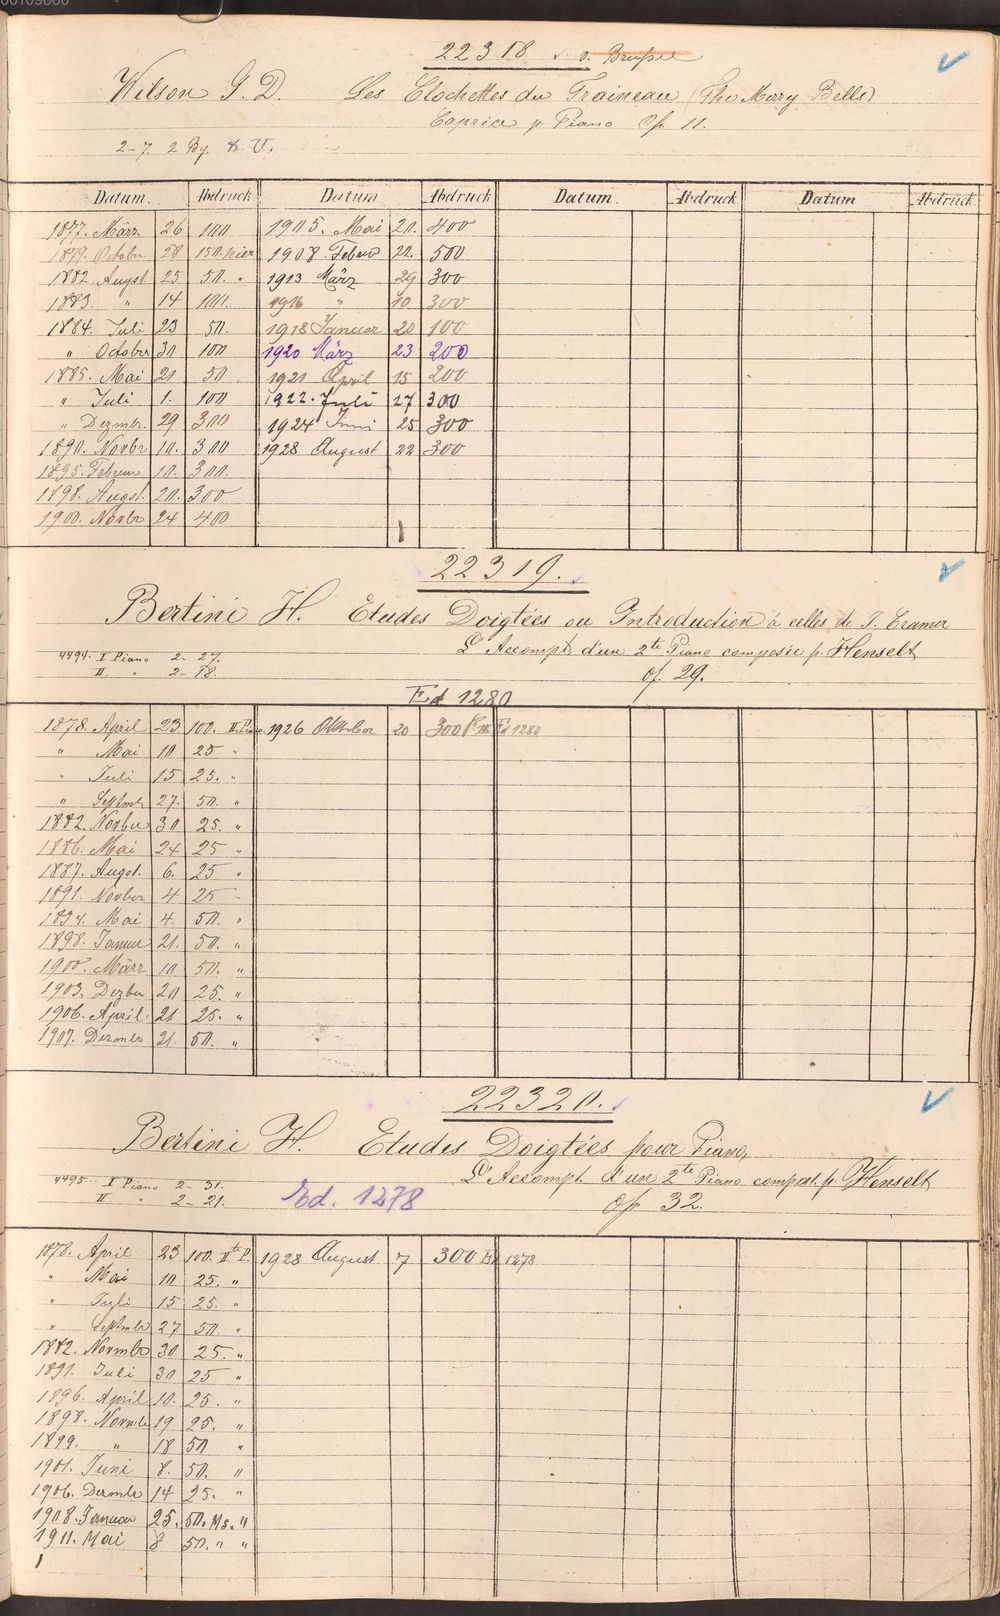 22318
Wilson G. D. Les Clochettes du Traineau (The Merry Bells)
Caprice p. Piano Op. 11.
2-7. 2 By.
Datum. Abdruck Datum Abdruck Datum. Abdruck Datum Abdruck
1877. März 26 100 1905. Mai 20. 400
1879. October 28 150. hier 1908. Februr 20. 500
1882 Augst 25 50. " 1913 März 29 300
1883. " 14 100. 1916 " 10 300
1884. Juli 23 50. 1918 Januar 20 100
" October 30 100 1920 März 23 200
1885. Mai 21 50 1921 April 15 200
" Juli 1. 100 1922. Juli 27 300
" Dezmbr. 29 300 1924 Juni 25 300
1890. Novbr 10. 300 1928 August 22 300
1895. Februar 10. 300.
1898. Augst. 20. 300
1900. Novbr 24 400
22319.
Bertini H. Etudes Doigtées ou Introduction à celles de J. Cramer
L'Accompt. d'un 2te Piano composée p. Henselt
4494. I Piano 2-27.
II. " 2-18.
op. 29.
Ed 1280
1878. April 23 100. II. Piano. 1926 Oktober 20 300 Ed 1280
" Mai 10 25 "
" Juli 15 25. "
" Septmbr 27. 50. "
1882. Novber 30 25. "
1886. Mai 24 25 "
1887. Augst. 6. 25 "
1891. Novber 4 25 "
1894. Mai 4. 50. "
1898. Januar 21. 50. "
1900. März 10 50. "
1903. Dezber 20 25. "
1906. April. 21 25. "
1907. Dezmbr 21. 50. "
22320.
Bertini H. Etudes Doigtées pour Piano,
L'Accompt. d'un 2te Piano compost. p. Henselt
4495. I Piano 2-31.
II " 2-21.
Ed. 1278
op. 32.
1878. April 23 100. IIte P. 1928 August 7 300 Ed 1278
" Mai 10 25. "
" Juli 15 25. "
" Septmbr 27 50. "
1882. Novmbr 30 25. "
1891. Juli 30 25 "
1896. April 10. 25. "
1898. Novmbr 19 25. "
1899. " 18 50 "
1901. Juni 8. 50. "
1906. Dezmbr 14 25. "
1908. Januar 25. 50. Ms. "
1911. Mai 8 50. " "